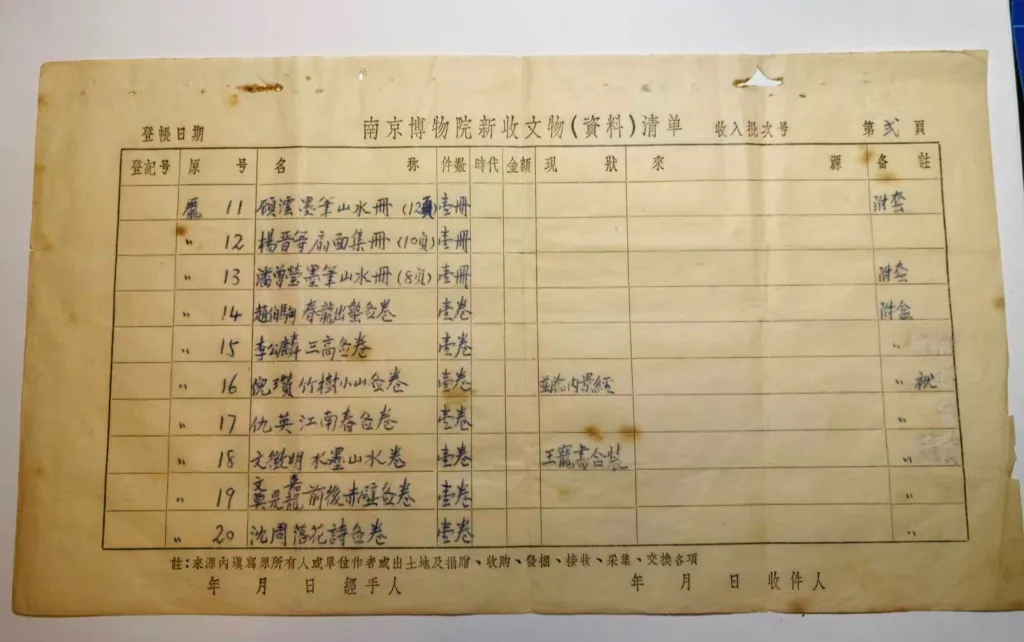 南京博物院新收文物(資料)清单
登帳日期 收入批次号 第弍頁
登記号 原号 名称 件数 時代 金額 現狀 來源 备註
龐 11 顾澐墨筆山水冊(12頁) 壹冊 附套
〃 12 楊晋等扇面集冊(10頁) 壹冊
〃 13 潘曾瑩墨筆山水冊(8頁) 壹冊 附套
〃 14 趙伯駒春龍出蟄啚卷 壹卷 附盒
〃 15 李公麟三高啚卷 壹卷 〃
〃 16 倪瓚竹樹小山啚卷 壹卷 内景經 〃
〃 17 仇英江南春啚卷 壹卷 〃
〃 18 文徵明水墨山水卷 壹卷 王寵書合裝 〃
〃 19 文嘉 莫是龍前後赤壁啚卷 壹卷 〃
〃 20 沈周落花詩啚卷 壹卷 〃
註:來源內填寫原所有人或單位作者或出土地及捐贈、收購、發掘、接收、采集、交換各項
年 月 日 經手人 年 月 日 收件人